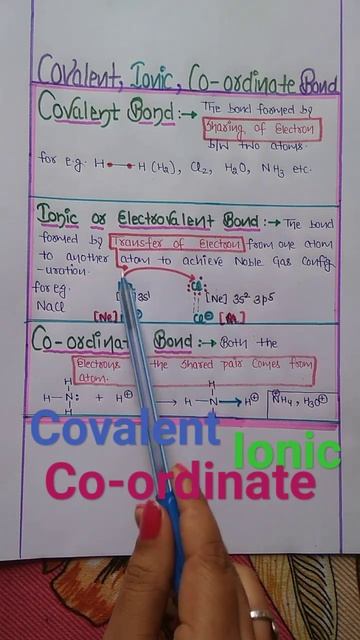 Covalent, Ionic, Co-ordinate Bond
Covalent Bond:→ The bond formed by
Sharing of Electron
b/w two atoms.
for e.g. H H (H2), Cl2, H2O, NH3 etc.
Ionic or Electrovalent Bond:→ The bond
formed by Transfer of Electron from one atom
to another atom to achieve Noble Gas Config
-uration.
for eg. Cl
NaCl 3s1 [Ne] 3s2 3p5
[Ne] Cl⊖
Bond:→ Both the
Electrons the shared pair comes from
atom.
H H
H—N: + H⊕ → H—N→H⊕ NH4, H3O⊕
H H
Covalent
Ionic
Co-ordinate